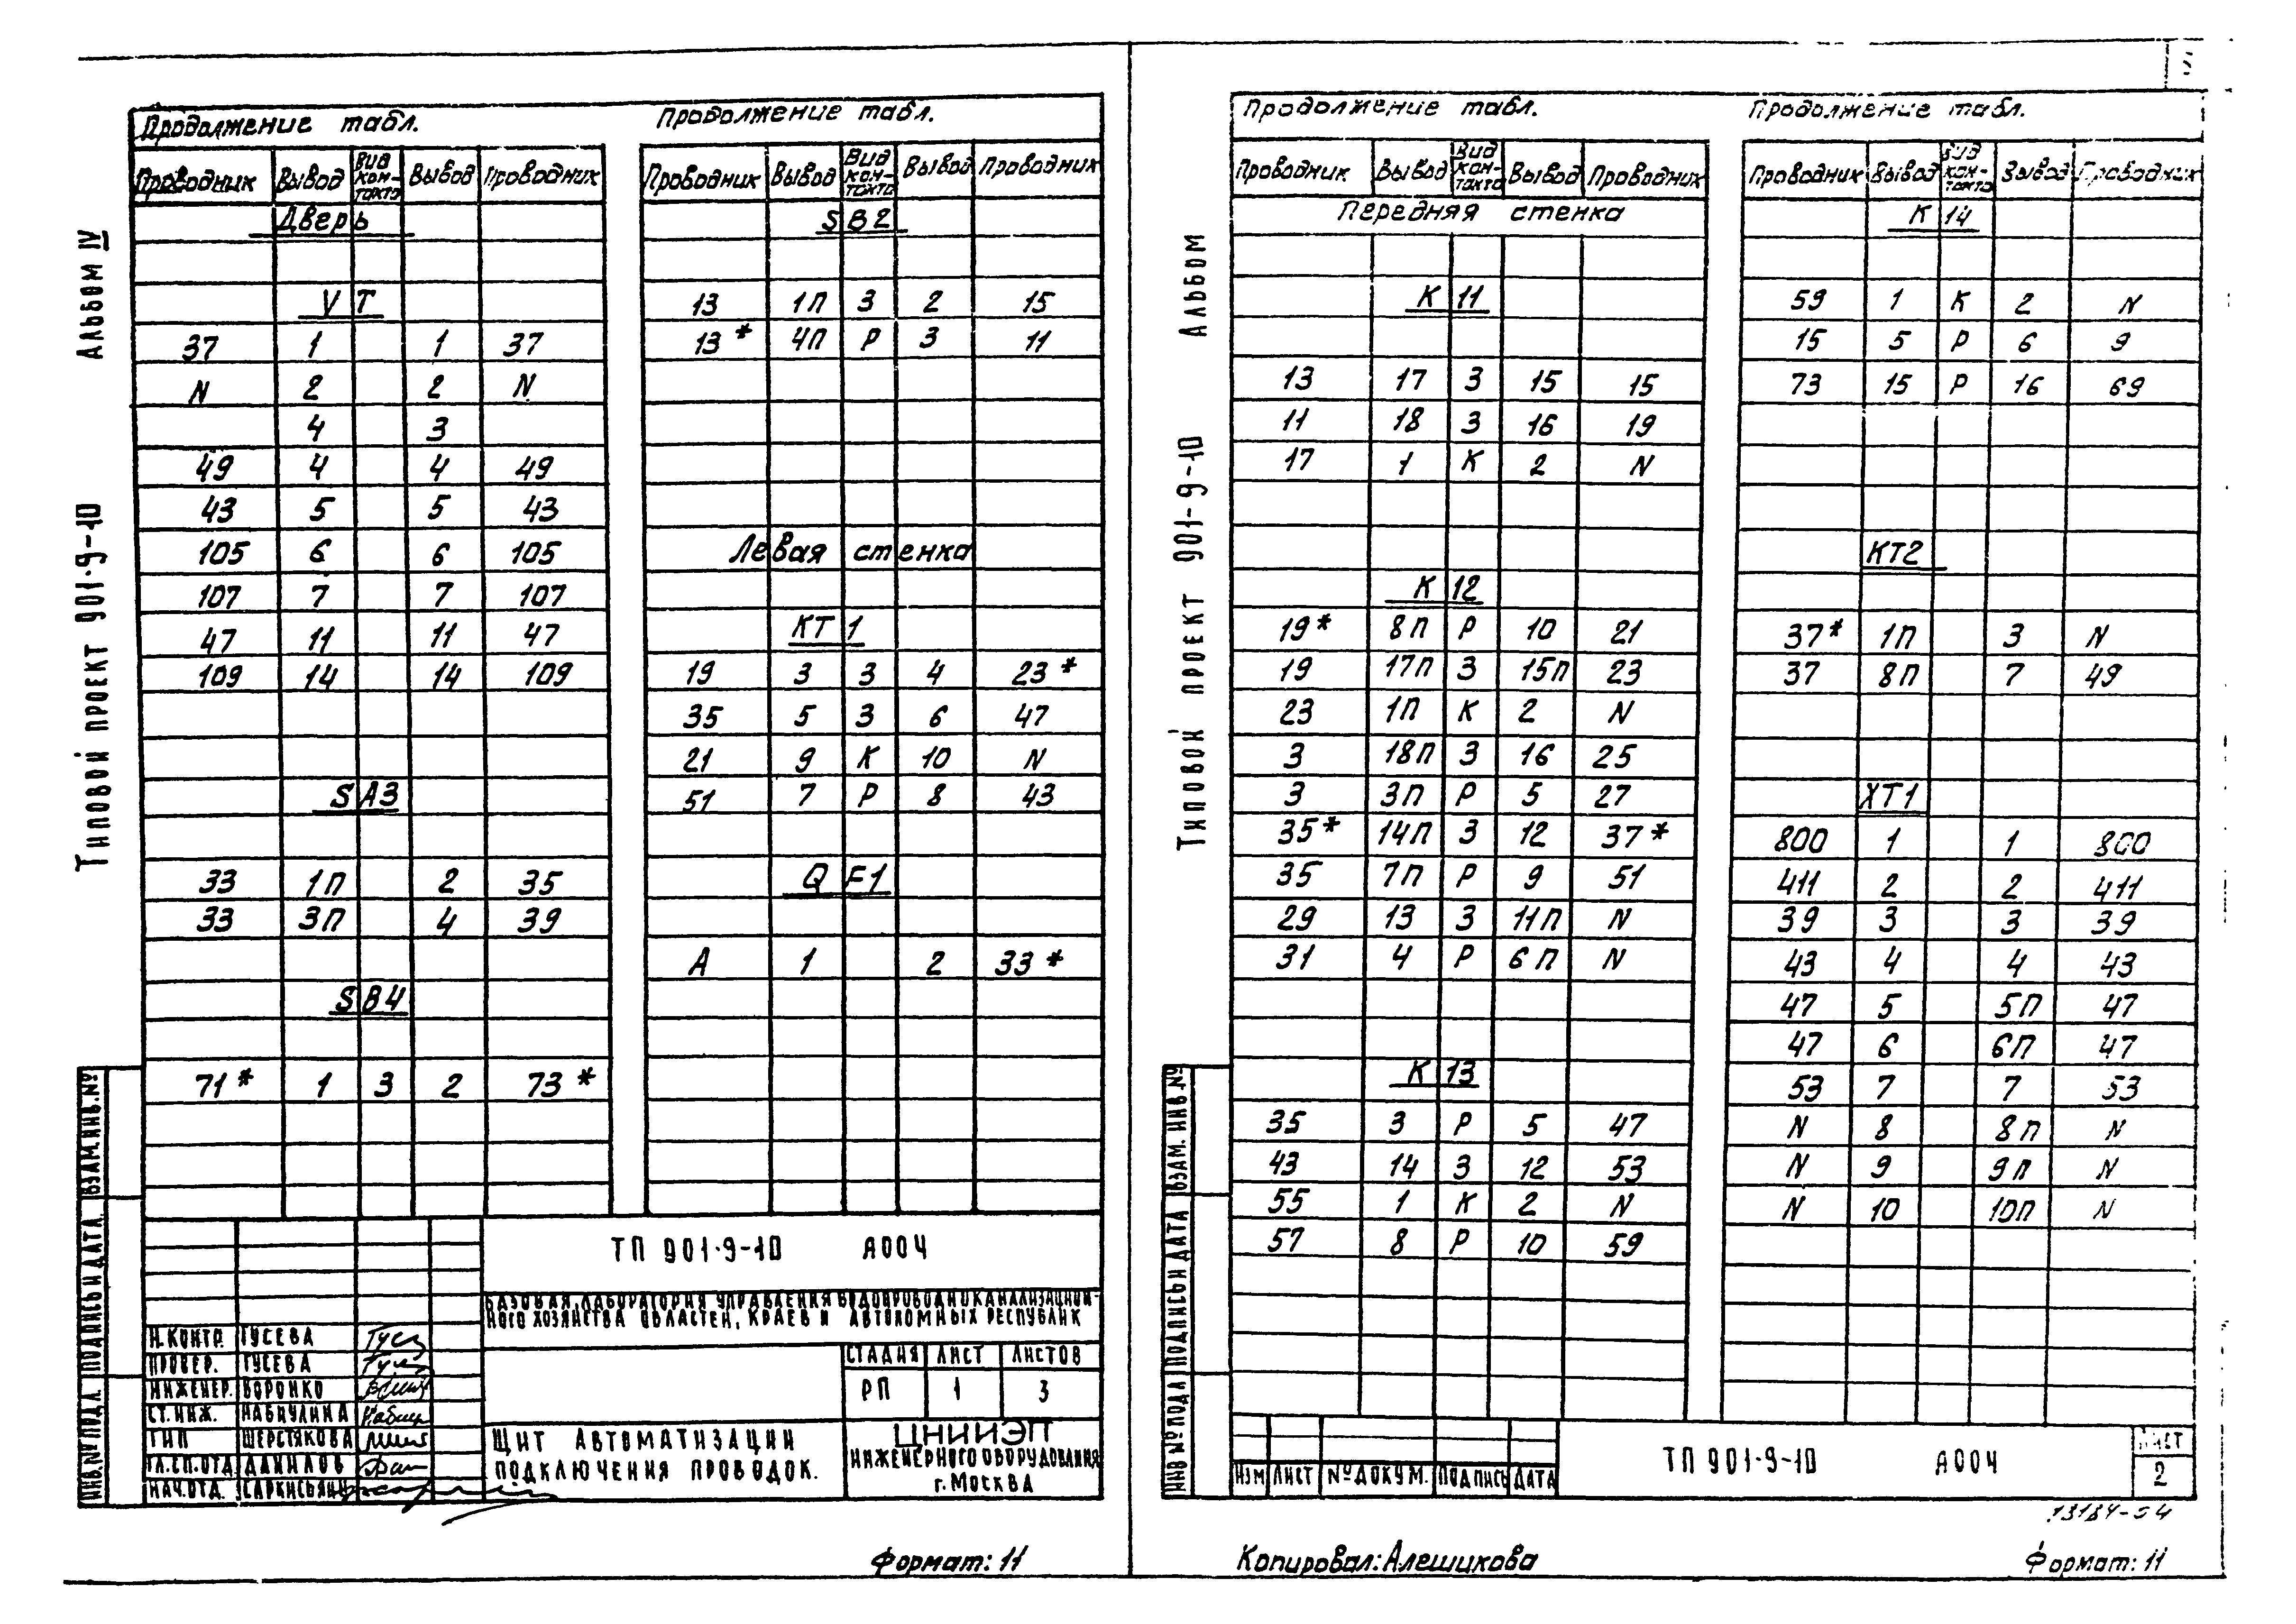 Продолжение табл.
Проводник Вывод Вид кон-такта Вывод Проводник
Дверь
VT
37 1 1 37
N 2 2 N
4 3
49 4 4 49
43 5 5 43
105 6 6 105
107 7 7 107
47 11 11 47
109 14 14 109
SA3
33 1П 2 35
33 3П 4 39
SB4
71* 1 З 2 73*
Продолжение табл.
Проводник Вывод Вид кон-такта Вывод Проводник
SB2
13 1П З 2 15
13* 4П Р 3 11
Левая стенка
КТ1
19 3 З 4 23*
35 5 З 6 47
21 9 К 10 N
51 7 Р 8 43
QF1
А 1 2 33*
Альбом IV
Типовой проект 901-9-10
Взам.инв.№
Подпись и дата
Инв.№ подл.
ТП 901-9-10 А004
Базовая лаборатория управления водопроводноканализацион-
ного хозяйства областей, краев и автономных республик
Н.контр. Гусева
Провер. Гусева
Инженер. Воронко
Ст.инж. Набиулина
ГИП Шерстякова
Гл.сп.отд. Данилов
Нач.отд. Саркисьянц
Стадия Лист Листов
РП 1 3
Щит автоматизации
подключения проводок.
ЦНИИЭП
инженерного оборудования
г. Москва
Формат: 11
Продолжение табл.
Проводник Вывод Вид кон-такта Вывод Проводник
Передняя стенка
К11
13 17 З 15 15
11 18 З 16 19
17 1 К 2 N
К12
19* 8П Р 10 21
19 17П З 15П 23
23 1П К 2 N
3 18П З 16 25
3 3П Р 5 27
35* 14П З 12 37*
35 7П Р 9 51
29 13 З 11П N
31 4 Р 6П N
К13
35 3 Р 5 47
43 14 З 12 53
55 1 К 2 N
57 8 Р 10 59
Продолжение табл.
Проводник Вывод Вид кон-такта Вывод Проводник
К14
59 1 К 2 N
15 5 Р 6 9
73 15 Р 16 69
КТ2
37* 1П 3 N
37 8П 7 49
ХТ1
800 1 1 800
411 2 2 411
39 3 3 39
43 4 4 43
47 5 5П 47
47 6 6П 47
53 7 7 53
N 8 8П N
N 9 9П N
N 10 10П N
Альбом
Типовой проект 901-9-10
Взам. инв.№
Подпись и дата
Инв №подл
Изм Лист № докум. Подпись Дата
ТП 901-9-10 А004
Лист
2
13184-04
Копировал: Алешикова
Формат: 11